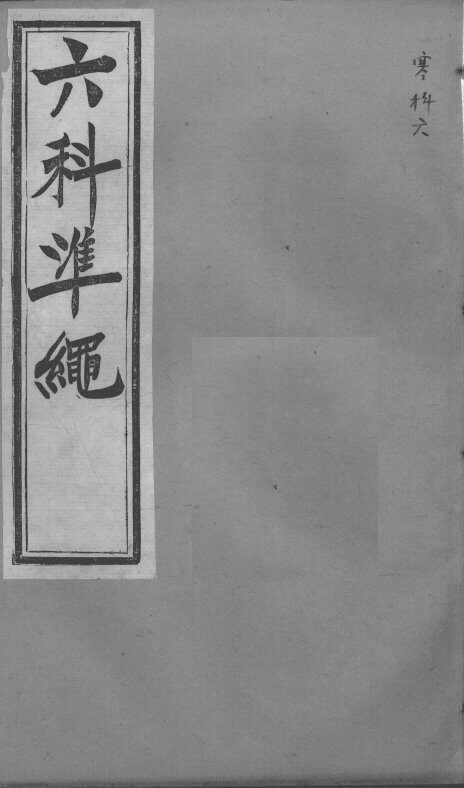 寒科六
六科準繩